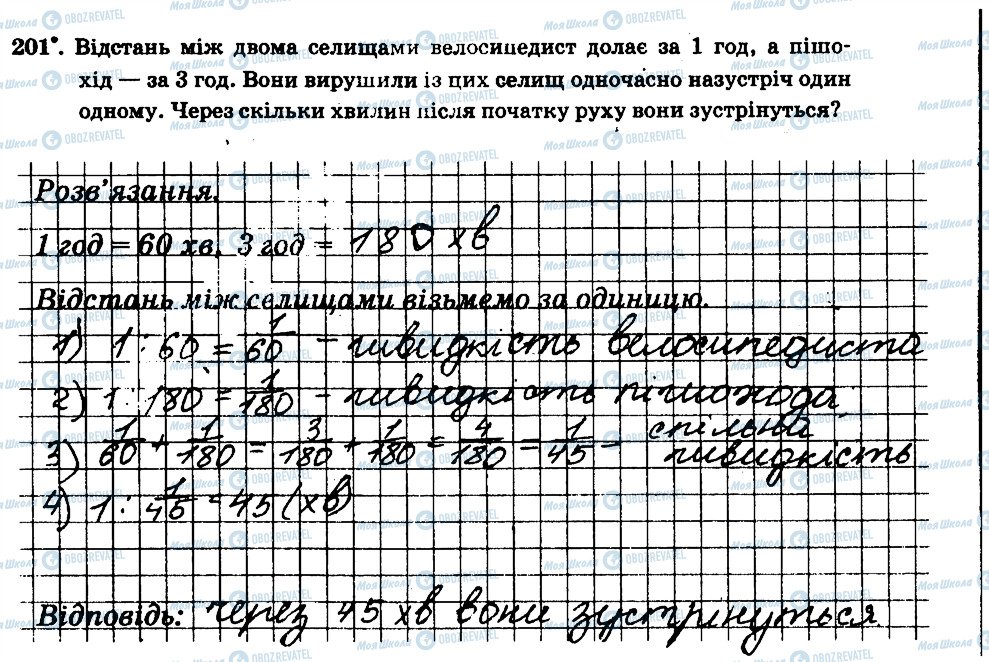 201°. Відстань між двома селищами велосипедист долає за 1 год, а пішо-
хід — за 3 год. Вони вирушили із цих селищ одночасно назустріч один
одному. Через скільки хвилин після початку руху вони зустрінуться?
Розв’язання.
1 год = 60 хв, 3 год = 180 хв
Відстань між селищами візьмемо за одиницю.
1) 1 : 60 = 1/60 – швидкість велосипедиста
2) 1 : 180 = 1/180 – швидкість пішохода
3) 1/60 + 1/180 = 3/180 + 1/180 = 4/180 = 1/45 – спільна швидкість
4) 1 : 1/45 = 45 (хв)
Відповідь: через 45 хв вони зустрінуться.
МояШкола OBOZREVATEL